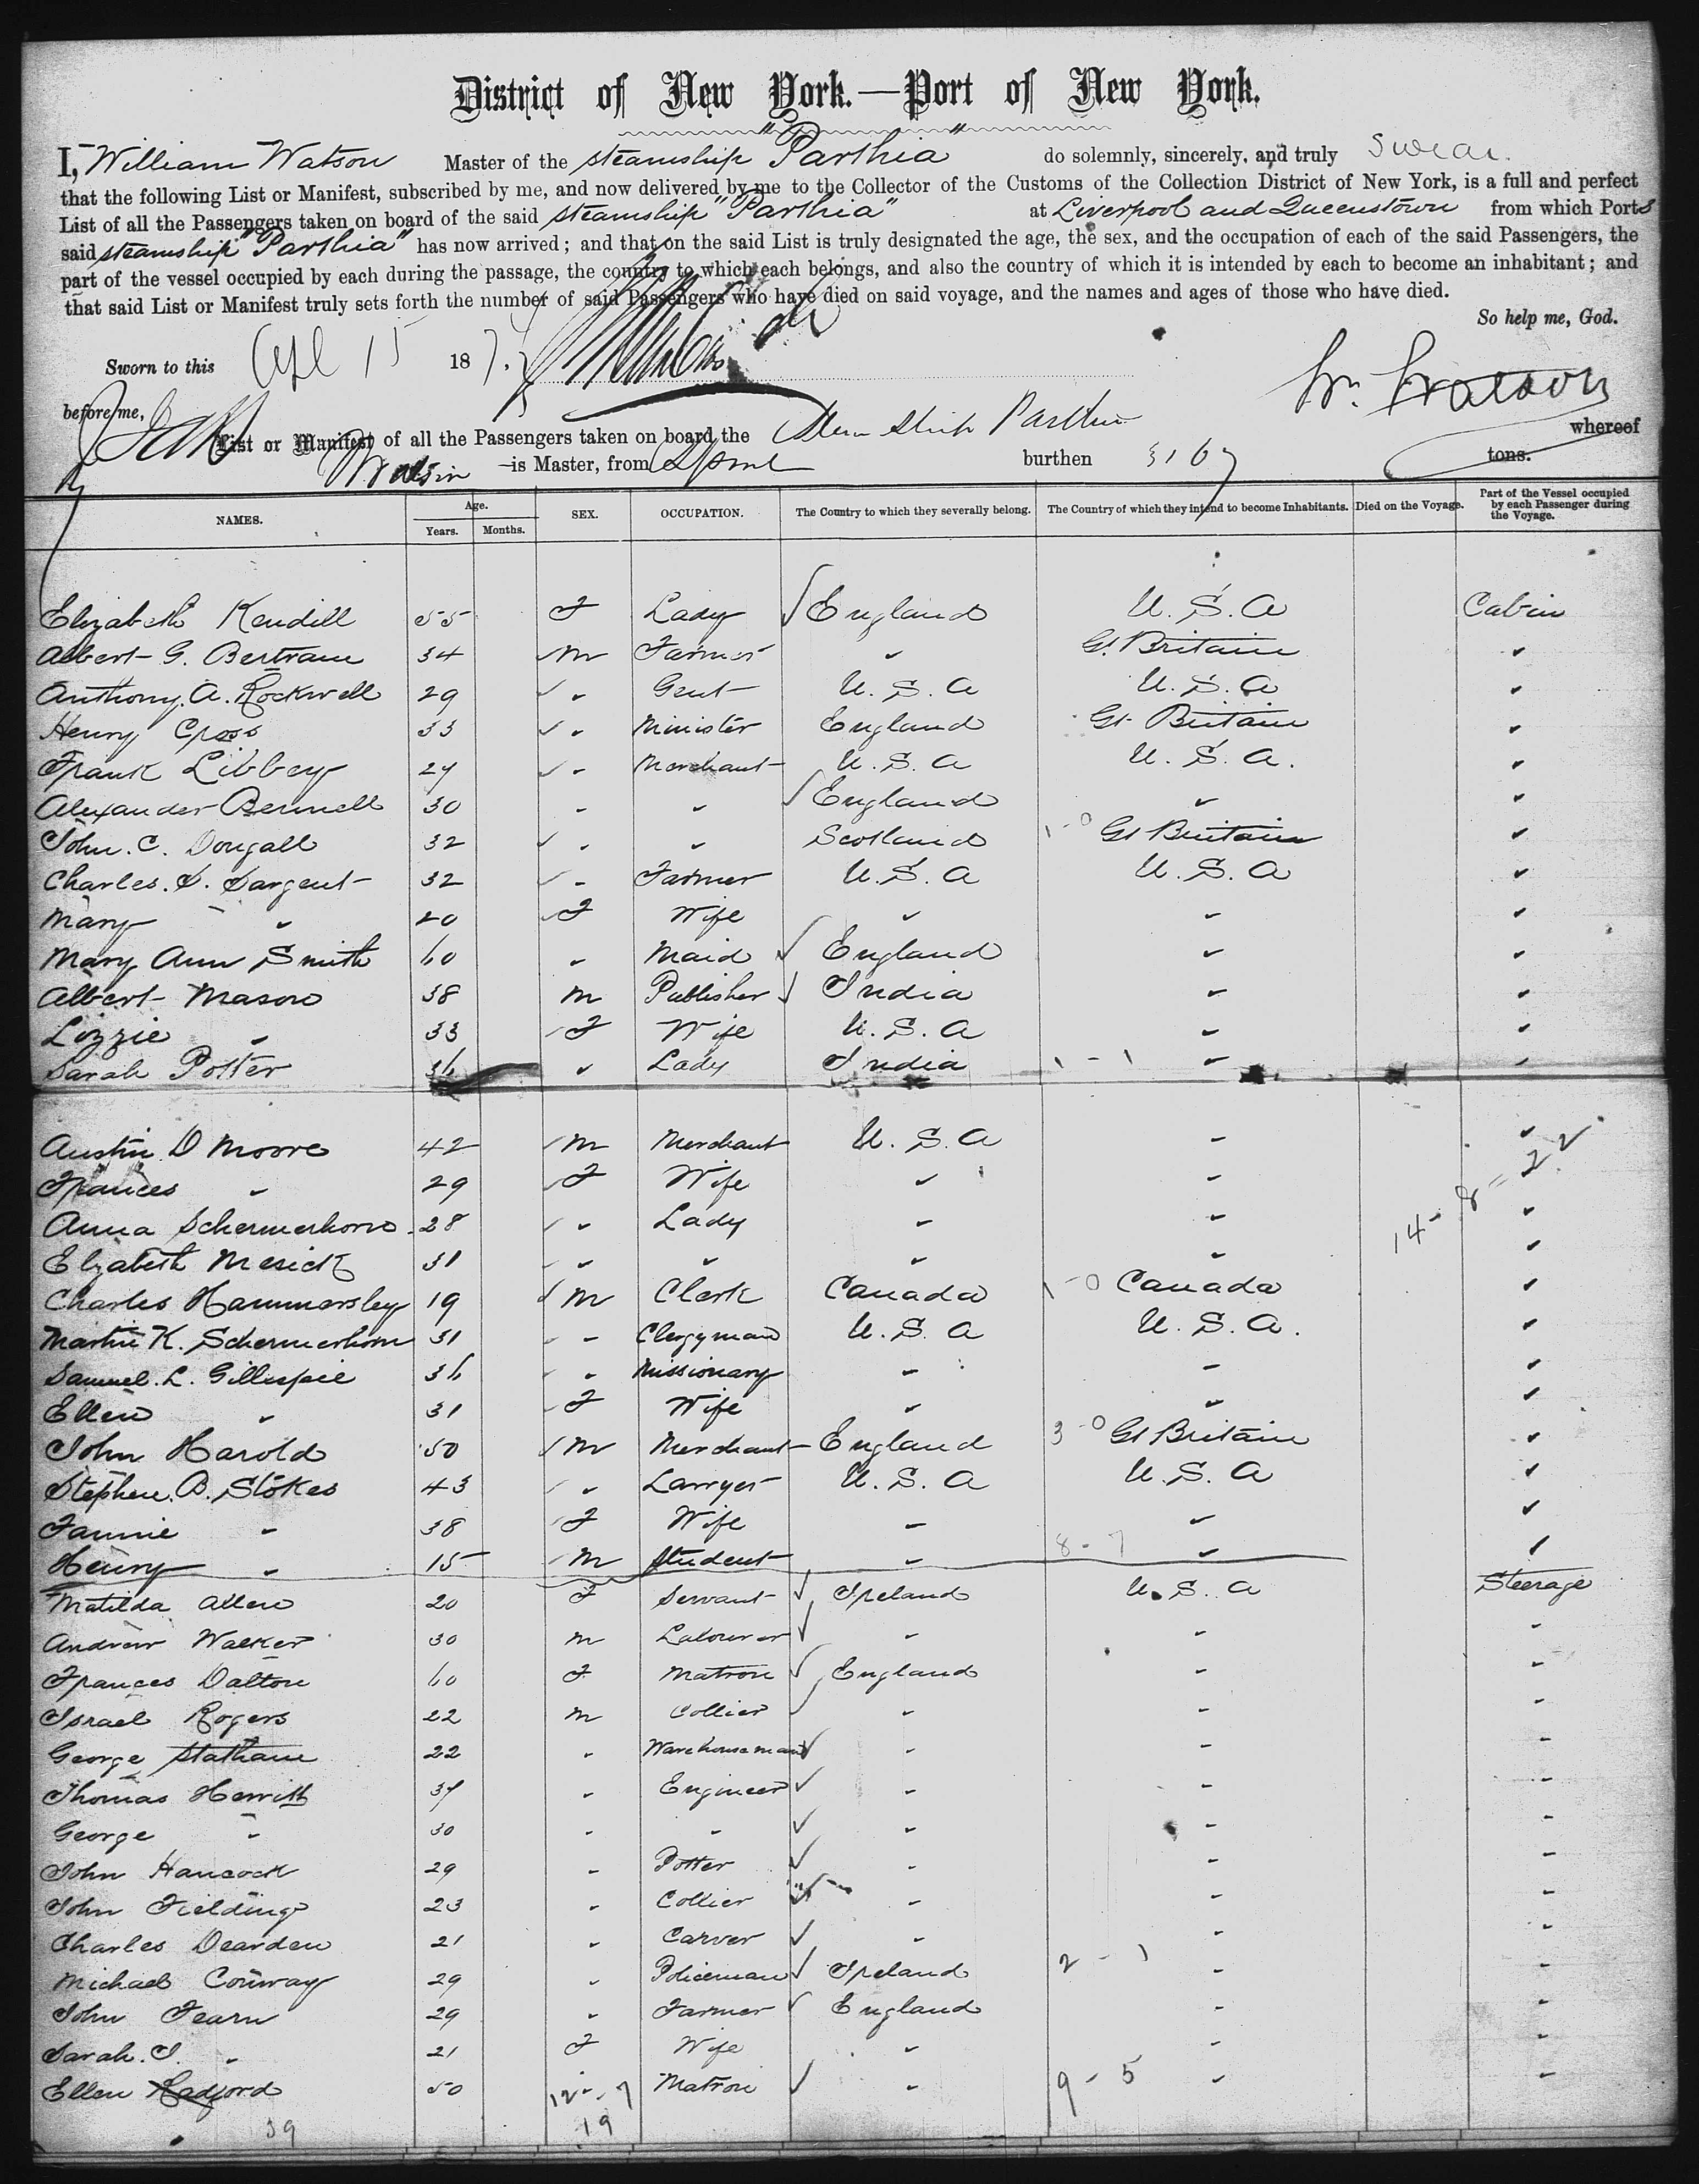 District of New York.—Port of New York.
I, William Watson Master of the steamship "Parthia" do solemnly, sincerely, and truly swear
that the following List or Manifest, subscribed by me, and now delivered by me to the Collector of the Customs of the Collection District of New York, is a full and perfect
List of all the Passengers taken on board of the said steamship "Parthia" at Liverpool and Queenstown from which Ports
said steamship "Parthia" has now arrived; and that on the said List is truly designated the age, the sex, and the occupation of each of the said Passengers, the
part of the vessel occupied by each during the passage, the country to which each belongs, and also the country of which it is intended by each to become an inhabitant; and
that said List or Manifest truly sets forth the number of said Passengers who have died on said voyage, and the names and ages of those who have died.
So help me, God.
Sworn to this Apl 15 187
before me,
Wm. Watson
List or Manifest of all the Passengers taken on board the Steam Ship Parthia whereof
Watson is Master, from burthen 3167 tons.
NAMES. Age. Years. Months. SEX. OCCUPATION. The Country to which they severally belong. The Country of which they intend to become Inhabitants. Died on the Voyage. Part of the Vessel occupied by each Passenger during the Voyage.
Elizabeth Kendill 55 F Lady England U.S.A Cabin
Albert G. Bertram 34 M Farmer " Gt. Britain "
Anthony. A. Rockwell 29 " Gent U.S.A U.S.A "
Henry Cross 33 " Minister England Gt Britain "
Frank Libbey 27 " Merchant U.S.A U.S.A. "
Alexander Bennell 30 " " England " "
John. C. Dougall 32 " " Scotland 1-0 Gt Britain "
Charles. S. Sargent 32 " Farmer U.S.A U.S.A "
Mary " 20 F Wife " " "
Mary Ann Smith 60 " Maid England " "
Albert Mason 38 M Publisher India " "
Lizzie " 33 F Wife U.S.A " "
Sarah Potter 36 " Lady India 1-1 " "
Austin D Moore 42 M Merchant U.S.A " "
Frances " 29 F Wife " " "
Anna Schermerhorn 28 " Lady " " "
14-8=22
Elizabeth Mesick 31 " " " " "
Charles Hammersley 19 M Clerk Canada 1-0 Canada "
Martin K. Schermerhorn 31 " Clergyman U.S.A U.S.A. "
Samuel. L. Gillespie 36 " Missionary " " "
Ellen " 31 F Wife " " "
John Harold 50 M Merchant England 3-0 Gt Britain "
Stephen. B. Stokes 43 " Lawyer U.S.A U.S.A "
Fannie " 38 F Wife " " "
Henry " 15 M Student " 8-7 " "
Matilda Allen 20 F Servant Ireland U.S.A Steerage
Andrew Walker 30 M Labourer " " "
Frances Dalton 60 F Matron England " "
Israel Rogers 22 M Collier " " "
George Statham 22 " Warehouseman " " "
Thomas Hewitt 37 " Engineer " " "
George " 30 " " " " "
John Hancock 29 " Potter " " "
John Fielding 23 " Collier " " "
Charles Dearden 21 " Carver " " "
Michael Conway 29 " Policeman Ireland 2-1 " "
John Fearn 29 " Farmer England " "
Sarah. J. " 21 F Wife " " "
Ellen Radford 50 12-7 Matron " 9-5 " "
39 19